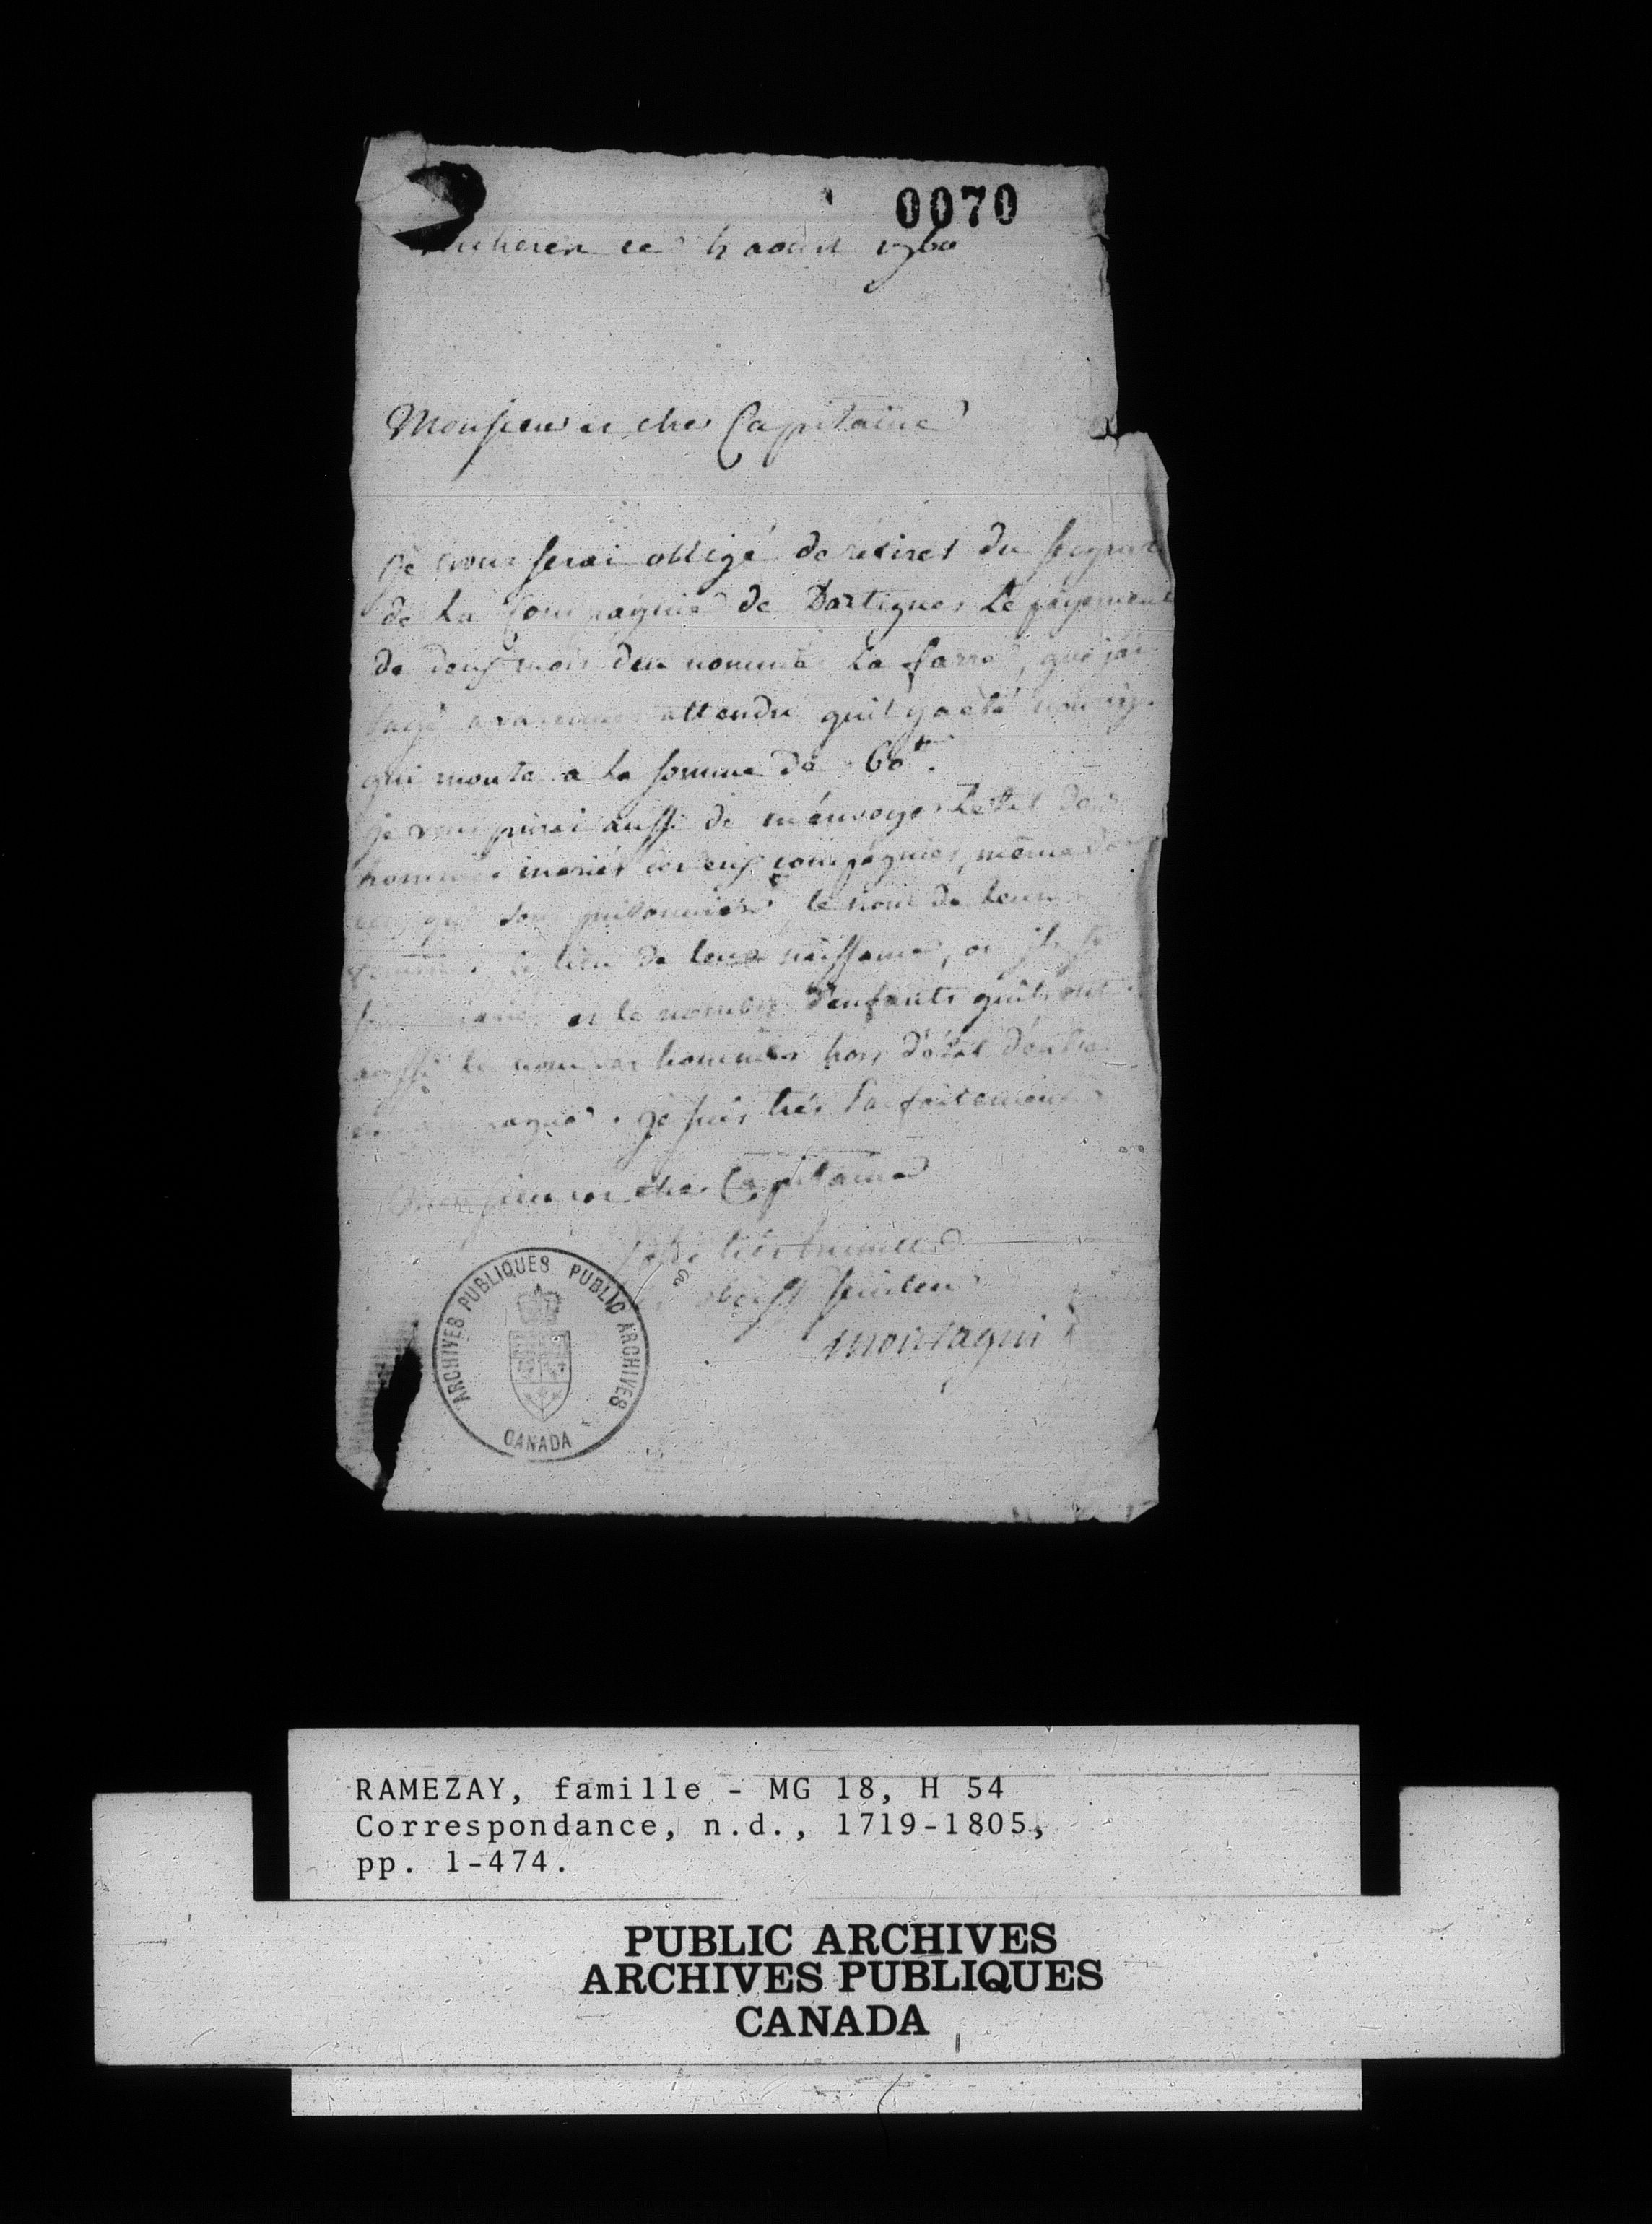 0070
ce 4 aoust 1760
Monsieur et cher Capitaine
Je vous serai obligé de retirer du
de La Compagnie de Dartigues Le payement
de deux mois du nommé La farre, que j'ai
attendu quil y a été
qui monte a la somme de 60tt.
je vous prirai aussi de m'envoyer L'etat des
hommes mariés des cinq compagnies, même de
ceux qui sont prisonniers, le nom de leurs
femmes, le lieu de leur naissance, ou ils se
sont mariés, et le nombre d'enfants quils ont
aussi le nom des hommes hors d'état d'entrer
en campagne. Je suis très Parfaitement
Monsieur et cher Capitaine
Votre très humble
et obeisst serviteur
ARCHIVES PUBLIQUES PUBLIC ARCHIVES
CANADA
RAMEZAY, famille - MG 18, H 54
Correspondance, n.d., 1719-1805,
pp. 1-474.
PUBLIC ARCHIVES
ARCHIVES PUBLIQUES
CANADA